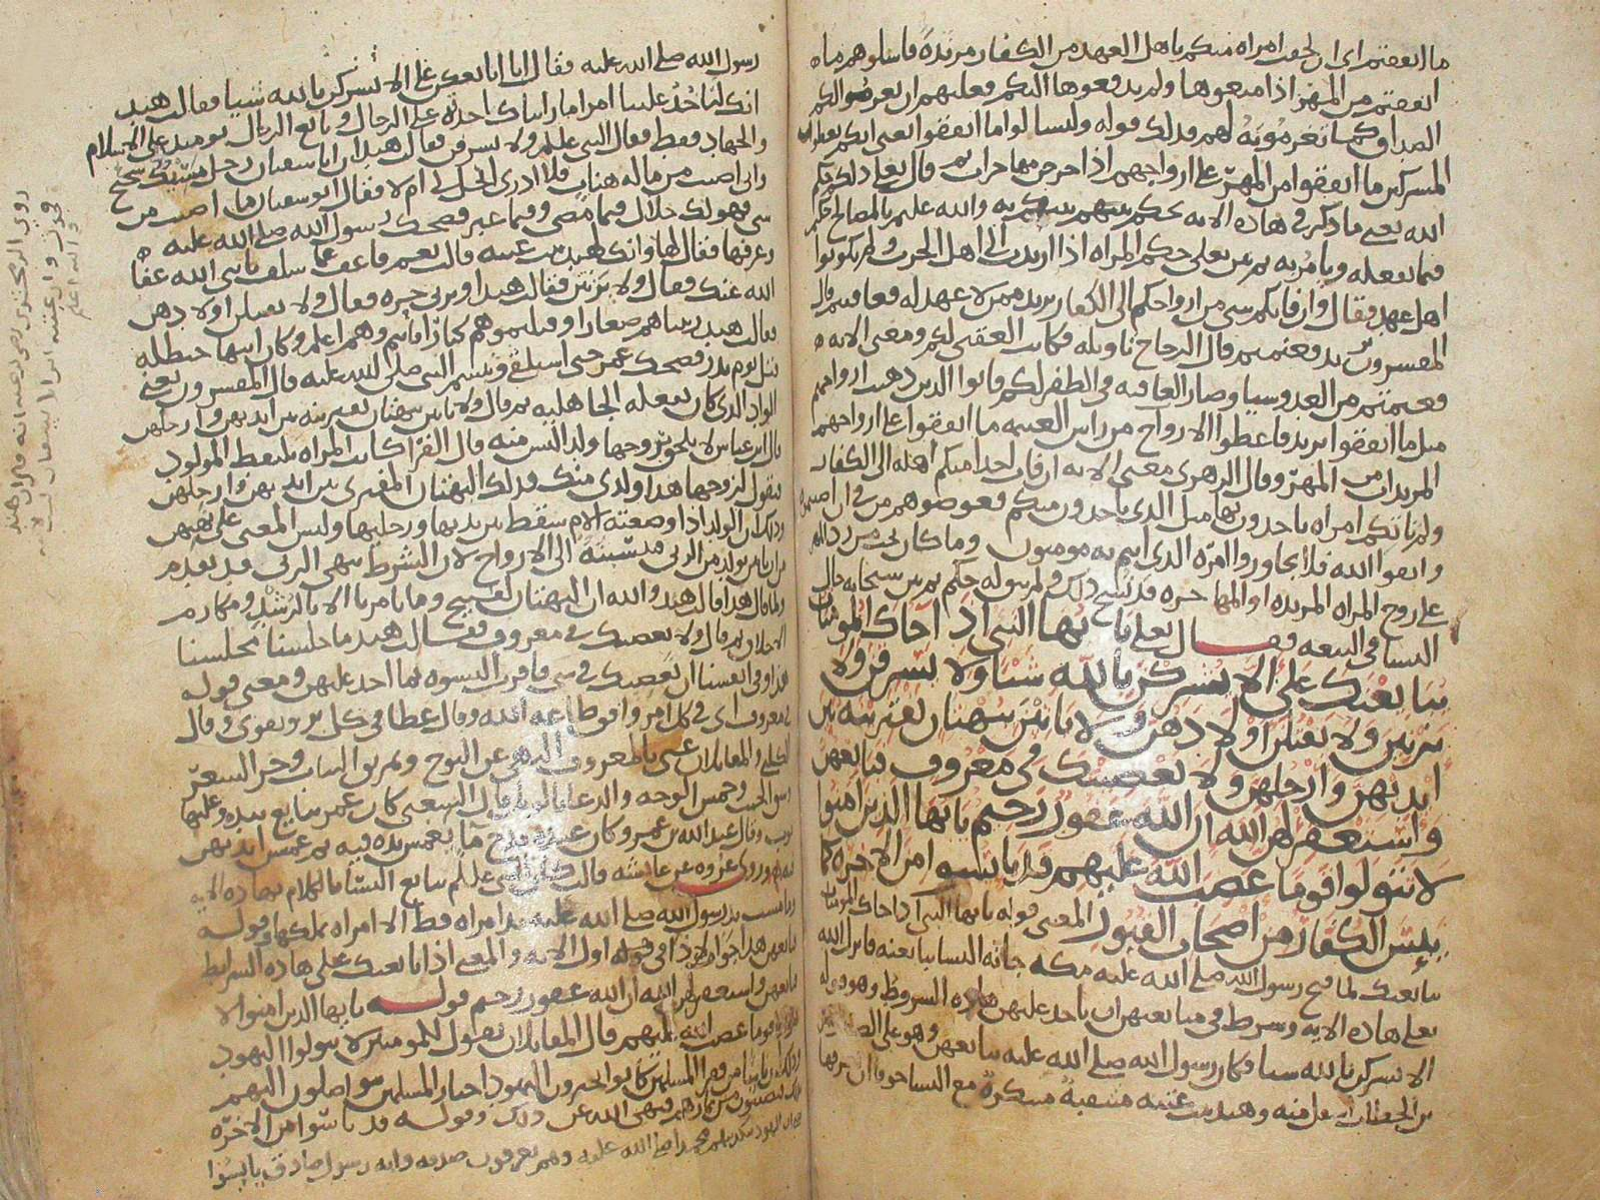 ما انفقتم اى ان لحقت امراه منكم باهل العهد من الكفار مرتدة فاسلوهم ما
انفقتم من المهر اذا منعوها ولم يدفعوها اليكم فعليهم ان يغرموا لكم
الصداق كما تغرمونه لهم فذلك قوله وليسالوا ما انفقوا يعنى
المشركين ما انفقوا من المهر على ازواجهم اذا خرجن مهاجرات ثم قال تعلى ذلكم حكم
الله يعنى ما ذكر فى هاذه الايه يحكم بينهم والله عليم بالمصالح حكيم
فيما يفعله ويامر به ثم بين تعلى حكم المراه اذا ارتدت الى اهل الحرب ولم يكونوا
اهل عهد فقال وان فاتكم شى من ازواجكم الى الكفار يريد ممن لا عهد له فعاقبتم قال
المفسرون يريد فغنمتم قال الزجاج تاويله فكانت العقبى لكم ومعنى الايه
فغنمتم من العدو سبيا وصار العاقبه فى الظفر لكم فاتوا الذين ذهبت ازواجهم
مثل ما انفقوا يريد فاعطوا الازواج من راس الغنيمه ما انفقوا على ازواجهم
المرتدات من المهر وقال الزهرى معنى الايه ان فات احدا منكم اهله الى الكفار
ولم تاتكم امراه تاخدون بها مثل الذى ياخدون منكم فعوضوهم من فى ان اصبتموه
واتقوا الله فلا تجاوزوا امره الذى انتم به مومنون وما كان يجب من رد المهر
على زوج المراه المرتده او المهاجره قد نسخ ذلك ولم يزل حكم ثم بين سبحانه حال
النسا فى البيعه فقال تعلى يا ايها النبى اذا جاك المومنات
يبايعنك على الا يشركن بالله شيا ولا يسرقن ولا
يزنين ولا يقتلن اولادهن ولا ياتين ببهتان يفترينه بين
ايديهن وارجلهن ولا يعصينك فى معروف فبايعهن
واستغفر لهن الله ان الله غفور رحيم يا يها الذين امنوا
لا تتولوا قوما غضب الله عليهم قد يئسوا من الاخره كما
يئس الكفار من اصحاب القبور المعنى قوله يا يها النبى اذا جاك المومنات
يبايعنك لما فتح رسول الله صلى الله عليه مكه جاته النسا يبايعنه فانزل الله
تعلى هاذه الايه وشرط فى مبايعتهن ان ياخد عليهن هاذه الشروط وهو قوله
الا يشركن بالله شيا فكان رسول الله صلى الله عليه يبايعهن وهو على الصفا
بن الخطاب اسفل منه وهند بنت عتبه متنقبة متنكرة مع النسا خوفا ان يعرفها
رسول الله صلى الله عليه فقال اما ابايعكن على الا تشركن بالله شيا فقالت هند
انك لتاخذ علينا امرا ما رايناك اخذته على الرجال وبايع الرجال يوميذ على الاسلام
والجهاد فقط فقال النبى عليلم ولا تسرقن فقالت هند ان ابا سفيان رجل شحيح
وانى اصبت من ماله هنات فلا ادرى اتحل لى ام لا فقال ابو سفيان ما اصبت من
شى فهو لك حلال فيما مضى وفيما غبر فضحك رسول الله صلى الله عليه
وعرفها فقال لها وانك لهند بنت عتبه قالت نعم فاعف عما سلف يا نبى الله عفا
الله عنك فقال ولا تزنين فقالت هند او تزنى حره فقال ولا تقتلن اولادهن
فقالت هند ربيناهم صغارا وقتلتموهم كبارا فانتم وهم اعلم وكان ابنها حنظله
قتل يوم بدر فضحك عمر حتى استلقى وتبسم النبى صلى الله عليه قال المفسرون يعنى
الواد الذى كان يفعله الجاهليه ثم قال ولا ياتين ببهتان يفترينه بين ايديهن وارجلهن
قال ابن عباس لا يلحقن بزوجها ولدا ليس منه قال الفرا كانت المراه تلتقط المولود
فتقول لزوجها هذا ولدى منك فذلك البهتان المفترى بين ايديهن وارجلهن
وذلك ان الولد اذا وضعته الام سقط بين يديها ورجليها وليس المعنى على نهيهن
من ان ياتين بولد من الزنى فينسبنه الى الازواج لان الشرط بنهى الزنى قد تقدم
ولما قال هذا قالت هند والله ان البهتان لقبيح وما تامرنا الا بالرشد ومكارم
الاخلاق ثم قال ولا يعصينك فى معروف فقالت هند ما جلسنا مجلسنا
هذا وفى انفسنا ان نعصيك فى شى فاقر النسوه بما اخد عليهن ومعنى قوله
فى معروف اى فى كل امر وافق طاعه الله وقال عطا فى كل بر وتقوى وقال
الكلبى والمقاتلان عنى بالمعروف النهى عن النوح وتمزيق الثياب وجز الشعر
وشق الجيب وخمش الوجه والدعا بالويل قال الشعبى كان عمر يبايع بيده وعليها
ثوب وقال عبد الله بن عمرو كان عنده قدح ما يغمس يده فيه ثم غمس ايديهن
فيه وروى عروه عن عايشه قالت كان النبى عليلم يبايع النسا بالكلام بهاذه الايه
وما مست يد رسول الله صلى الله عليه يد امراه قط الا امراه يملكها وقوله
فبايعهن هذا جواب لاذا فى قوله اول الايه والمعنى اذا بايعنك على هاذه الشرايط
فبايعهن واستغفر لهن الله ان الله غفور رحيم قوله يا يها الذين امنوا لا
تتولوا قوما غضب الله عليهم قال المقاتلان يقول للمومنين لا تتولوا اليهود
وذلك ان ناسا من فقرا المسلمين كانوا يخبرون اليهود اخبار المسلمين يتواصلون اليهم
فيصيبون من ثمارهم فنهى الله عن ذلك وقوله قد يئسوا من الاخره
يعنى ان اليهود بتكذيبهم محمدا صلى الله عليه وهم يعرفون صدقه وانه رسول صادق يايسوا